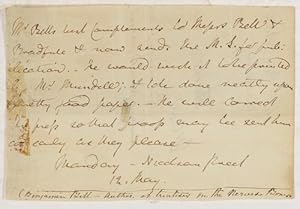 Mr Bells best Complements to Messrs Bell &
Bradfute & now sends the M.S. for pub-
lication.. He would wish it to be printed
by Mr Mundell; & to be done neatly upon
pretty good paper. - He will correct
press so that proofs may be sent him
as early as they please -
Monday - Nicolson Street
12. May.
(Benjamin Bell - Author of treatises on the